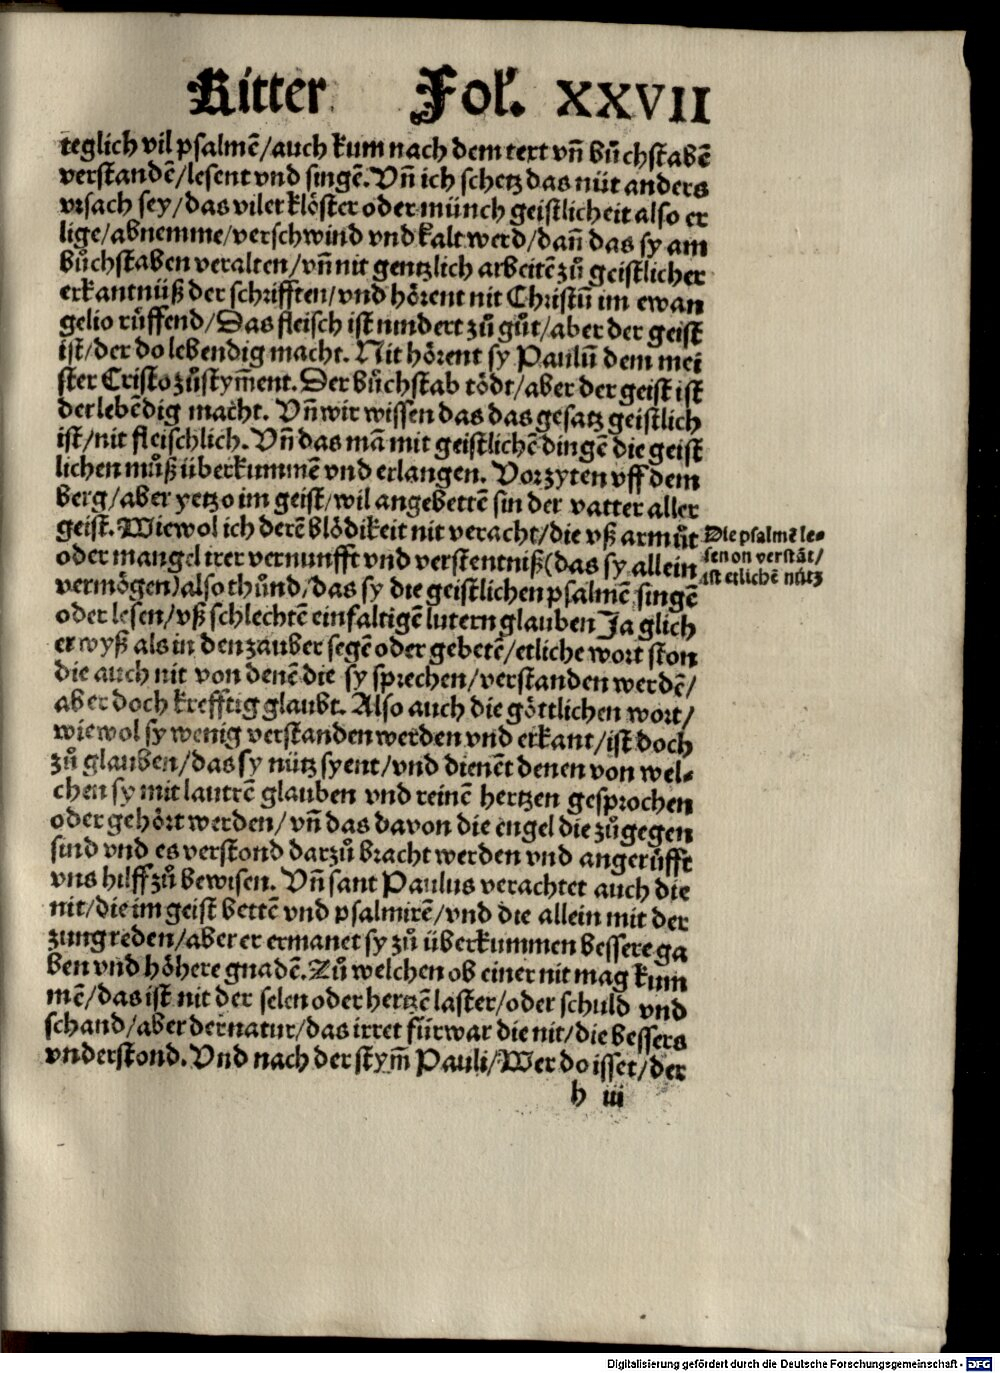 Ritter Fol. XXVII
teglich vil psalmē/auch kum nach dem text vn̄ bůchstabē
verstandē/lesent vnd singē. Vn̄ ich schetz das nüt anders
vrsach sey/das viler klöster oder münch geistlicheit also er
lige/abnemme/verschwind vnd kalt werd/dañ das sy am
bůchstaben veralten/vn̄ nit gentzlich arbeitē zů geistlicher
erkantnüß der schrifften/vnd hörent nit Christū im ewan
gelio rüffend/Das fleisch ist nindert zů gůt/aber der geist
ist/der do lebendig macht. Nit hörent sy Paulū dem mei
ster Cristo zůstym̄ent. Der bůchstab tödt/aber der geist ist
der lebēdig macht. Vn̄ wir wissen das das gesatz geistlich
ist/nit fleischlich. Vn̄ das mā mit geistlichē dingē die geist
lichen můß überkummē vnd erlangen. Vor zyten vff dem
berg/aber yetzo im geist/wil angebettē sin der vatter aller
geist. Wiewol ich derē blödikeit nit veracht/die vß armůt
oder mangel irer vernunfft vnd verstentniß(das sy allein
vermögen)also thůnd/das sy die geistlichen psalmē singē
oder lesen/vß schlechtē einfaltigē lutern glauben Ja glich
er wyß als in den zauber segē oder gebetē/etliche wort ston
die auch nit von denē die sy sprechen/verstanden werdē/
aber doch krefftig glaubt. Also auch die göttlichen wort/
wiewol sy wenig verstanden werden vnd erkant/ist doch
zů glauben/das sy nütz syent/vnd dienēt denen von wel-
chen sy mit lautrē glauben vnd reinē hertzen gesprochen
oder gehört werden/vn̄ das davon die engel die zůgegen
sind vnd es verstond darzů bracht werden vnd angerüfft
vns hilff zů bewisen. Vn̄ sant Paulus verachtet auch die
nit/die im geist bettē vnd psalmirē/vnd die allein mit der
zung reden/aber er ermanet sy zů überkummen bessere ga
ben vnd höhere gnadē. Zů welchen ob einer nit mag kum
mē/das ist nit der selen oder hertzē laster/oder schuld vnd
schand/aber der natur/das irret fürwar die nit/die bessers
vnderstond. Vnd nach der stym̄ Pauli/Wer do isset/der
h iii
Die psalmē le-
sen on verstāt/
ist etlichē nütz
Digitalisierung gefördert durch die Deutsche Forschungsgemeinschaft - DFG